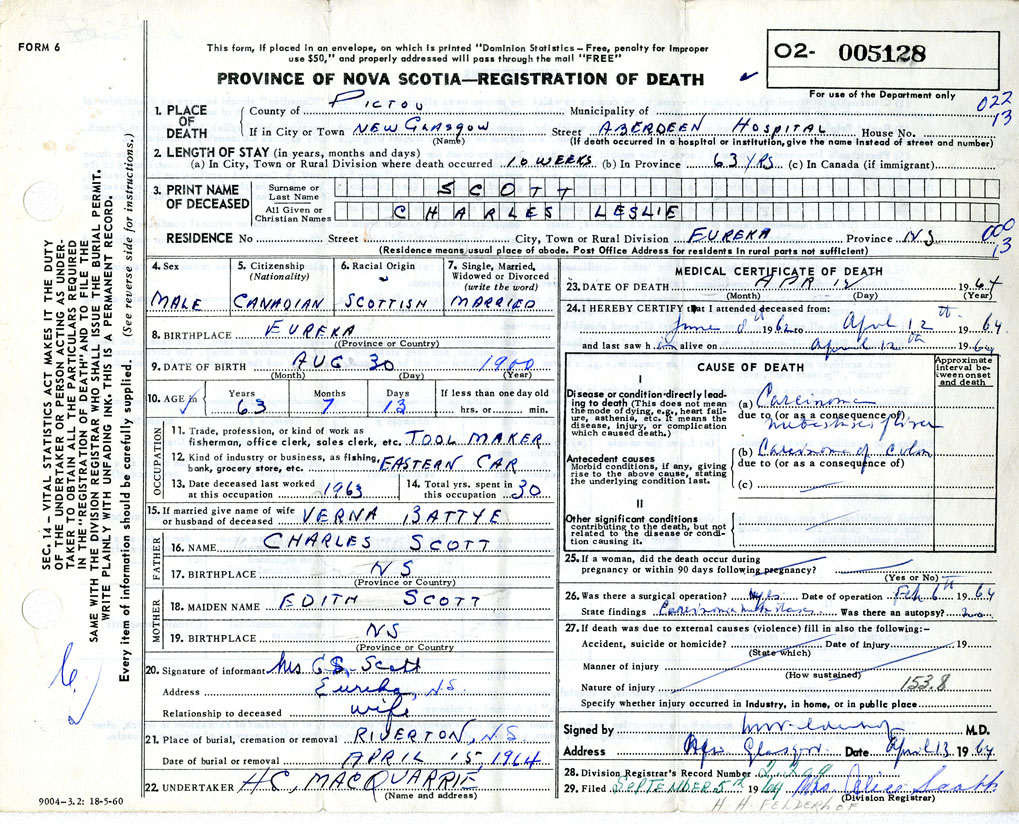 FORM 6
This form, if placed in an envelope, on which is printed "Dominion Statistics – Free, penalty for improper
use $50," and properly addressed will pass through the mail "FREE"
PROVINCE OF NOVA SCOTIA—REGISTRATION OF DEATH
O2- 005128
For use of the Department only
022
13
1. PLACE OF DEATH
County of PICTOU Municipality of
If in City or Town NEW GLASGOW Street ABERDEEN HOSPITAL House No.
(Name) (If death occurred in a hospital or institution, give the name instead of street and number)
2. LENGTH OF STAY (in years, months and days)
(a) In City, Town or Rural Division where death occurred 10 WEEKS (b) In Province 63 YRS (c) In Canada (if immigrant)
3. PRINT NAME OF DECEASED
Surname or Last Name SCOTT
All Given or Christian Names CHARLES LESLIE
RESIDENCE No Street City, Town or Rural Division EUREKA Province NS
000
13
(Residence means usual place of abode. Post Office Address for residents in rural parts not sufficient)
4. Sex 5. Citizenship (Nationality) 6. Racial Origin 7. Single, Married, Widowed or Divorced (write the word)
MALE CANADIAN SCOTTISH MARRIED
8. BIRTHPLACE EUREKA
(Province or Country)
9. DATE OF BIRTH AUG 30 1900
(Month) (Day) (Year)
10. AGE in Years Months Days If less than one day old
63 7 13 hrs. or min.
OCCUPATION
11. Trade, profession, or kind of work as
fisherman, office clerk, sales clerk, etc. TOOL MAKER
12. Kind of industry or business, as fishing,
bank, grocery store, etc. EASTERN CAR
13. Date deceased last worked at this occupation 1963
14. Total yrs. spent in this occupation 30
15. If married give name of wife
or husband of deceased VERNA BATTYE
FATHER
16. NAME CHARLES SCOTT
17. BIRTHPLACE NS
(Province or Country)
MOTHER
18. MAIDEN NAME EDITH SCOTT
19. BIRTHPLACE NS
(Province or Country)
20. Signature of informant Mrs. C.L. Scott
Address Eureka, N.S.
Relationship to deceased wife
21. Place of burial, cremation or removal RIVERTON, N.S.
Date of burial or removal APRIL 15, 1964
22. UNDERTAKER H.C. MACQUARRIE
(Name and address)
9004–3.2: 18-5-60
MEDICAL CERTIFICATE OF DEATH
23. DATE OF DEATH APR 12 1964
(Month) (Day) (Year)
24. I HEREBY CERTIFY that I attended deceased from:
June 8th 1962 to April 12th 1964
and last saw h alive on April 12th 1964
CAUSE OF DEATH
Approximate interval between onset and death
I
Disease or condition directly leading to death (This does not mean the mode of dying, e.g., heart failure, asthenia, etc. It means the disease, injury, or complication which caused death.)
(a) Carcinoma
due to (or as a consequence of)
metastasis of liver
Antecedent causes
Morbid conditions, if any, giving rise to the above cause, stating the underlying condition last.
(b) Carcinoma of colon
due to (or as a consequence of)
(c)
II
Other significant conditions
contributing to the death, but not related to the disease or condition causing it.
25. If a woman, did the death occur during
pregnancy or within 90 days following pregnancy?
(Yes or No)
26. Was there a surgical operation? Yes Date of operation Feb 6th 1964
State findings Carcinoma Was there an autopsy? no
27. If death was due to external causes (violence) fill in also the following:–
Accident, suicide or homicide? Date of injury 19
(State which)
Manner of injury
(How sustained)
Nature of injury 153.8
Specify whether injury occurred in Industry, in home, or in public place
Signed by M.D.
Address New Glasgow Date April 13 1964
28. Division Registrar's Record Number
29. Filed SEPTEMBER 5th 1964 Mrs. Alice
(Division Registrar)
H. H. FELDERHOF
SEC. 14 – VITAL STATISTICS ACT MAKES IT THE DUTY
OF THE UNDERTAKER OR PERSON ACTING AS UNDER-
TAKER TO OBTAIN ALL THE PARTICULARS REQUIRED
IN THE "REGISTRATION OF DEATH" AND TO FILE THE
SAME WITH THE DIVISION REGISTRAR WHO SHALL ISSUE THE BURIAL PERMIT.
WRITE PLAINLY WITH UNFADING INK. THIS IS A PERMANENT RECORD.
Every item of information should be carefully supplied. (See reverse side for instructions.)